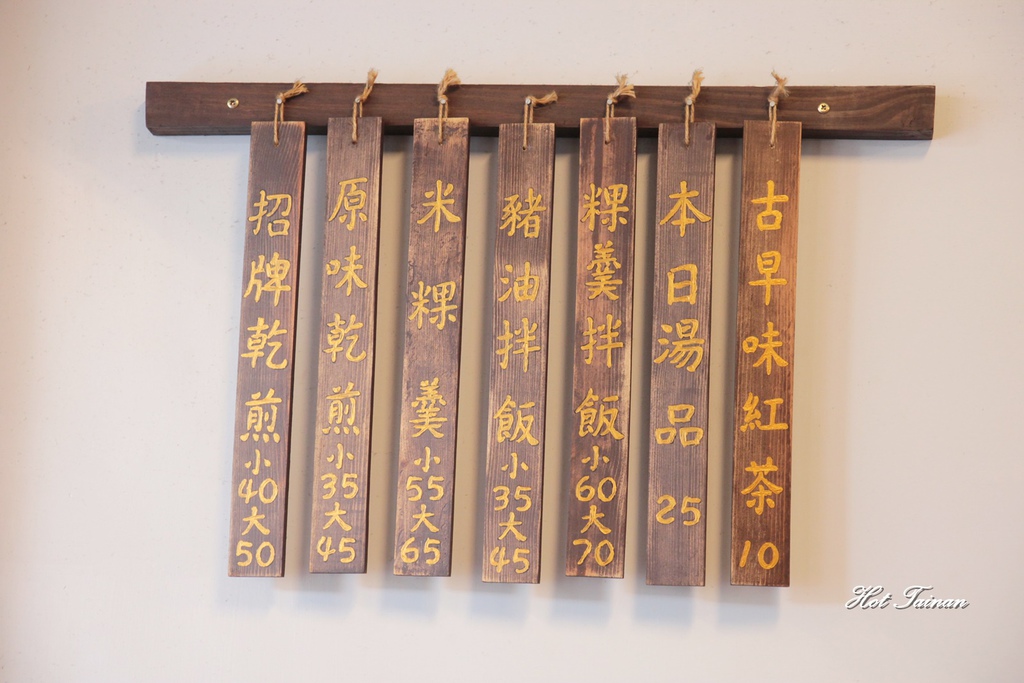 招牌乾煎小40大50
原味乾煎小35大45
米粿羹小55大65
豬油拌飯小35大45
粿羹拌飯小60大70
本日湯品25
古早味紅茶10
Hot Tainan